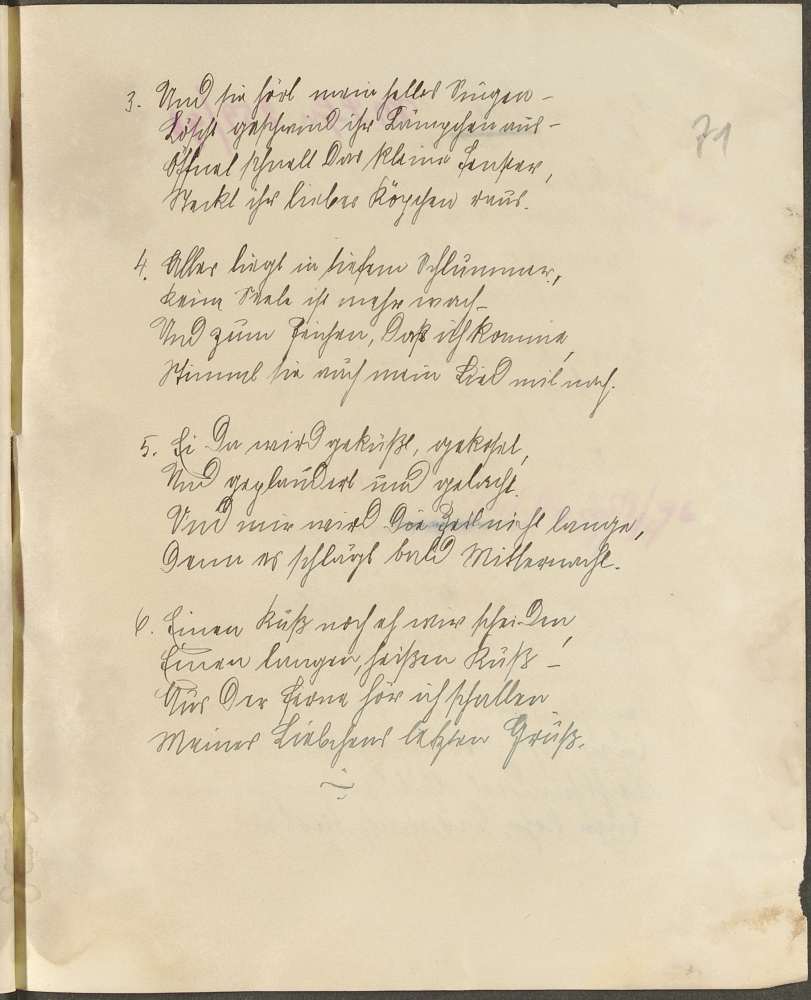 71
3. Und sie hört mein helles Singen –
Löscht geschwind ihr Lämpchen aus –
Öffnet schnell das kleine Fenster,
Steckt ihr liebes Köpchen raus.
4. Alles liegt in tiefem Schlummer,
Keine Seele ist mehr wach –
Und zum Zeichen, daß ich komme,
Stimmt sie auch mein Lied mit nach.
5. Ei da wird geküßt, gekoset,
Und geplaudert und gelacht.
Und mir wird die Zeit nicht lange,
Denn es schlägt bald Mitternacht.
6. Einen Kuß noch eh wir scheiden,
Einen langen, heißen Kuß –
Aus der Ferne hör ich schallen
Meines Liebchens letzten Gruß.